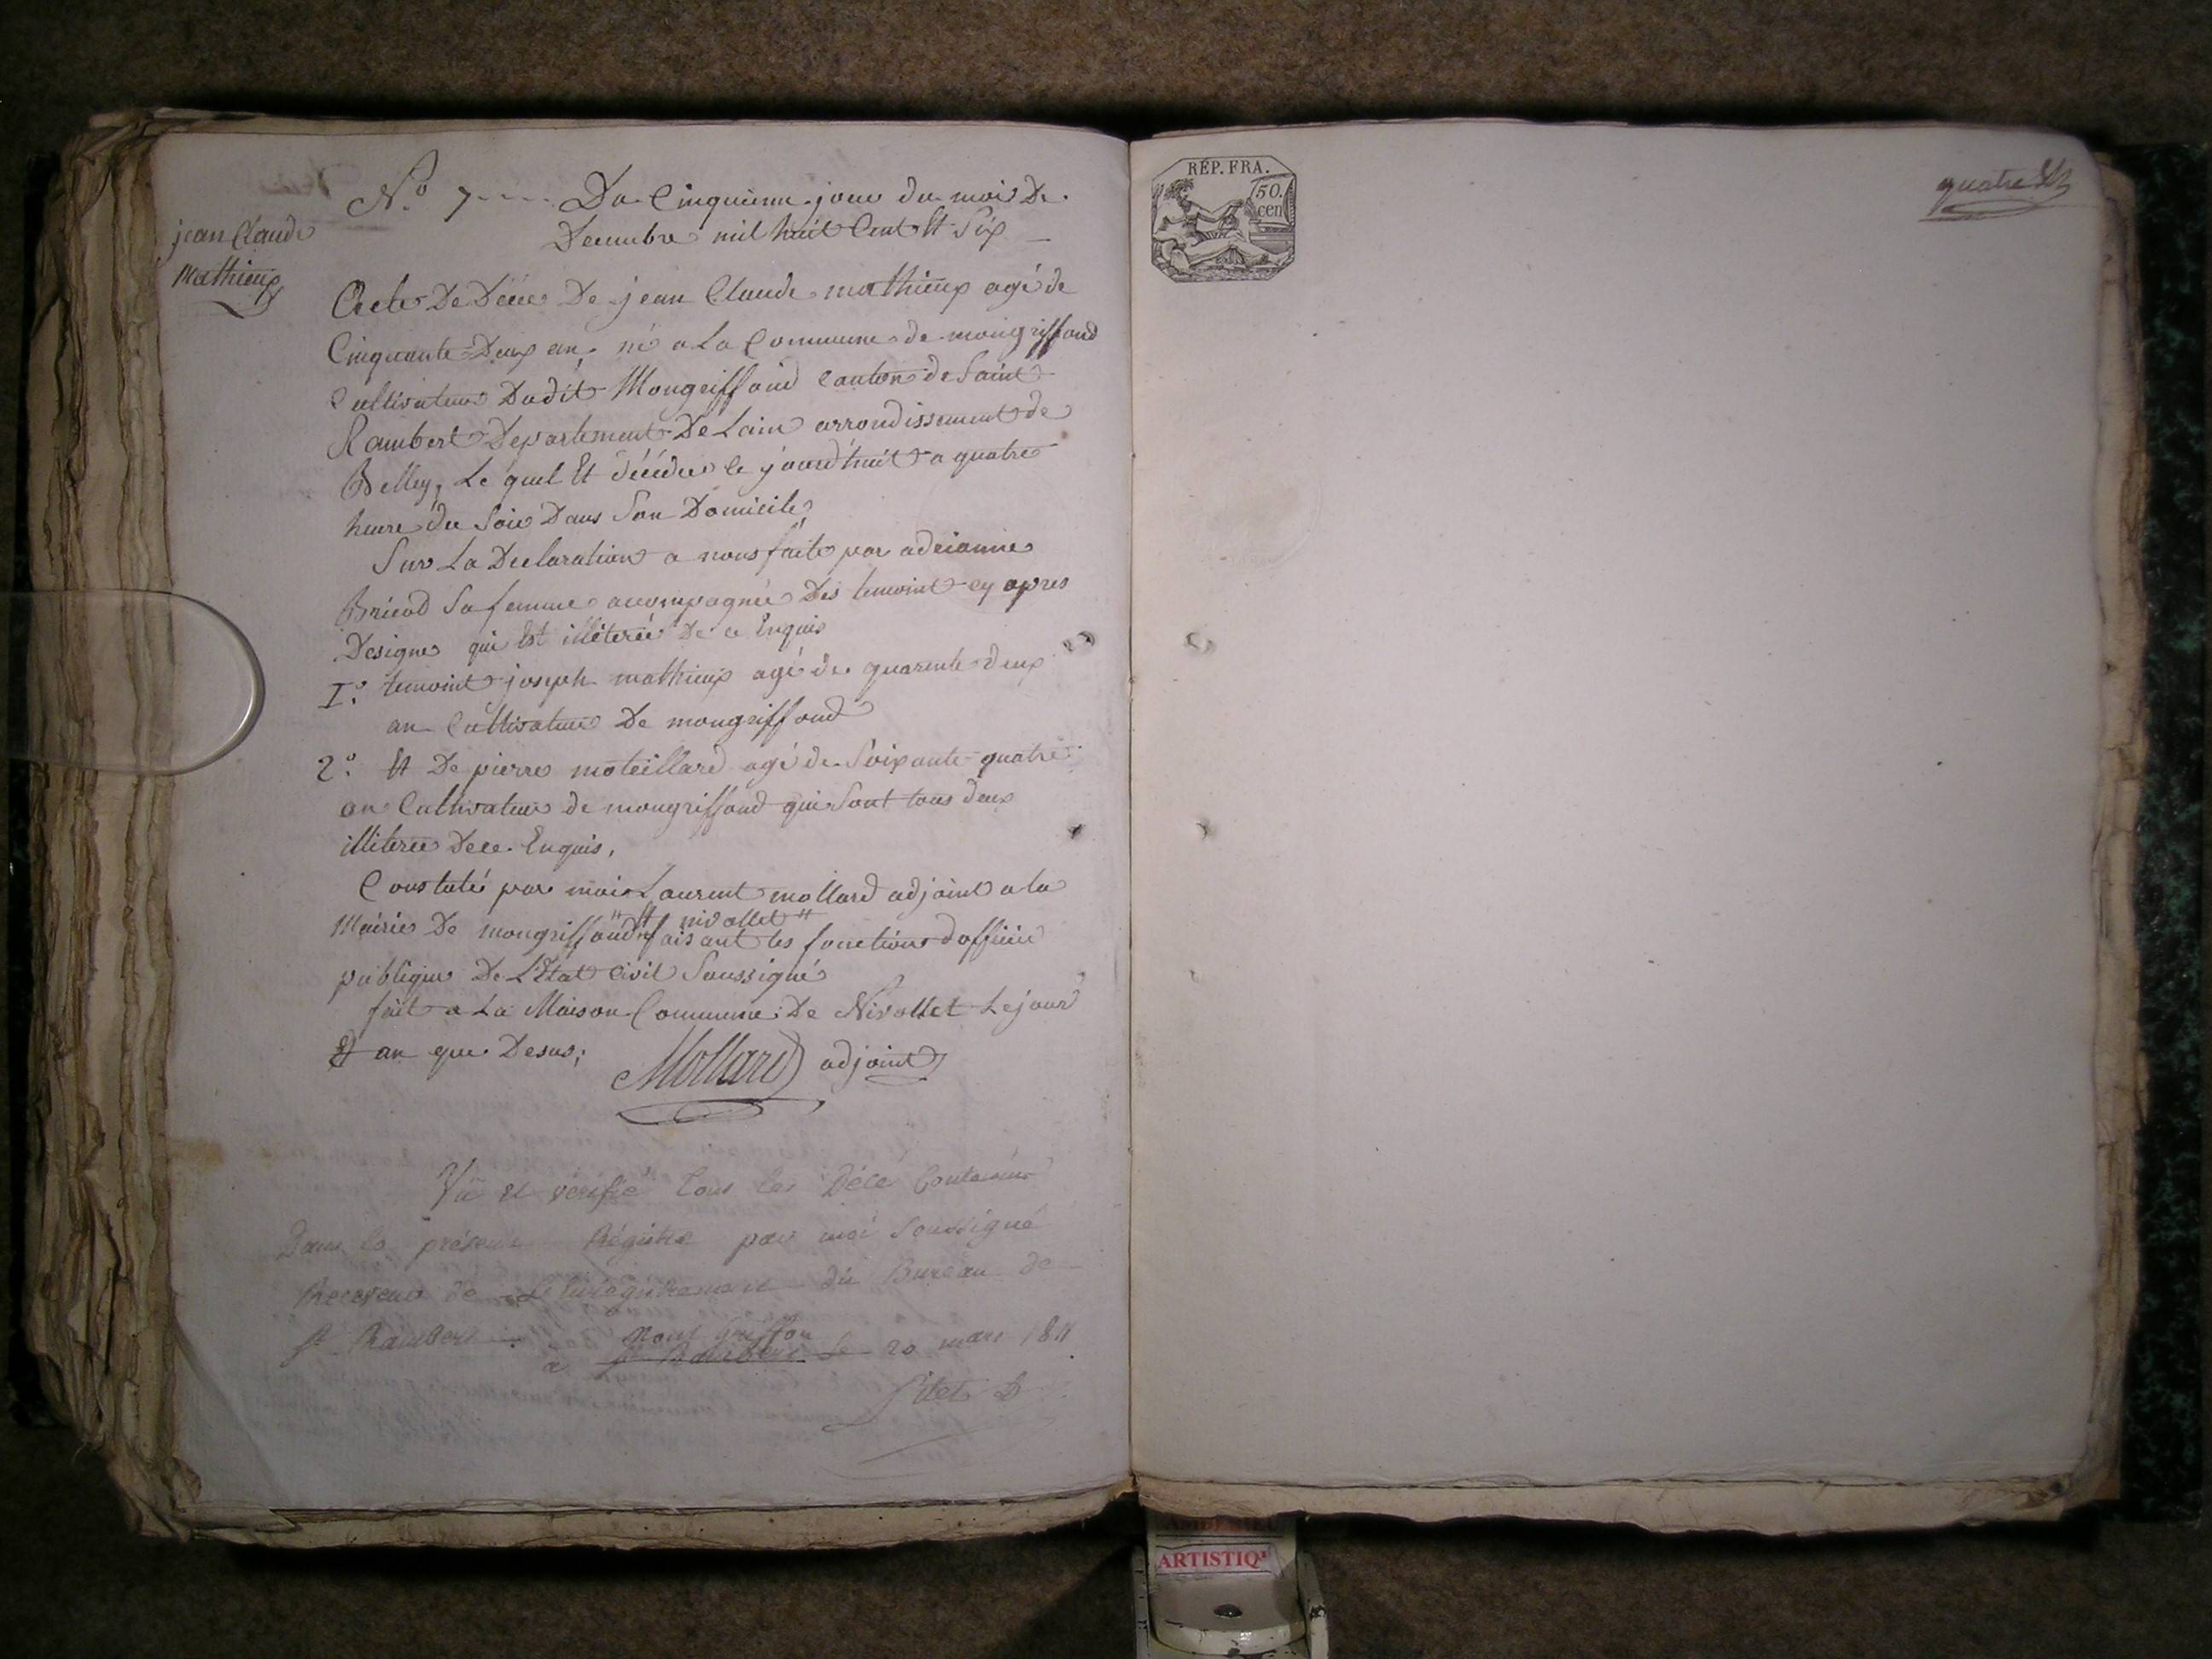 N.º 7 - - - - Du Cinquieme jour du mois De
Decembre mil huit Cent Et Six
jean Claude
Mathieux
Acte De Décée De jean Claude mathieux agé de
Cinquante Deux an né a La Commune de mongriffond
Cultivateur Dudit Mongriffond Canton de Saint
Rambert Departement De Lain arrondissement de
Belley, Le quel Et décéder le jourd'huit a quatre
heure du Soir Dans Son Domicile
Sur La Declaration a nous faite par adrianne
Briend Sa femme accompagnée Des temoint cy apres
Designe qui Est illéterée De ce Enquis
1º. temoint joseph mathieux agé de quarente deux
an Cultivateur De mongriffond
2º. Et De pierre moteillard agé de Soixante quatre
an Cultivateur de mongriffond qui Sont tous deux
illiteree De ce Enquis,
Constaté par moi Laurent mollard adjoint a la
" Et nivollet "
Mairie De mongriffond faisant les fonctions d'officier
publique De L'Etat Civil Soussigné
fait a La Maison Commune De Nivollet Le jour
Et an que Desus; Mollard adjoint
Vû et vérifié tous les Décé Contenus
Dans le présent Régistre par moi Soussigné
Receveur de L'Enrégistrement du Bureau de
St Rambert. mont Griffon
a St Rambert le 20 mars 1811
RÉP. FRA.
50.
cen
quatre
ARTISTIQ